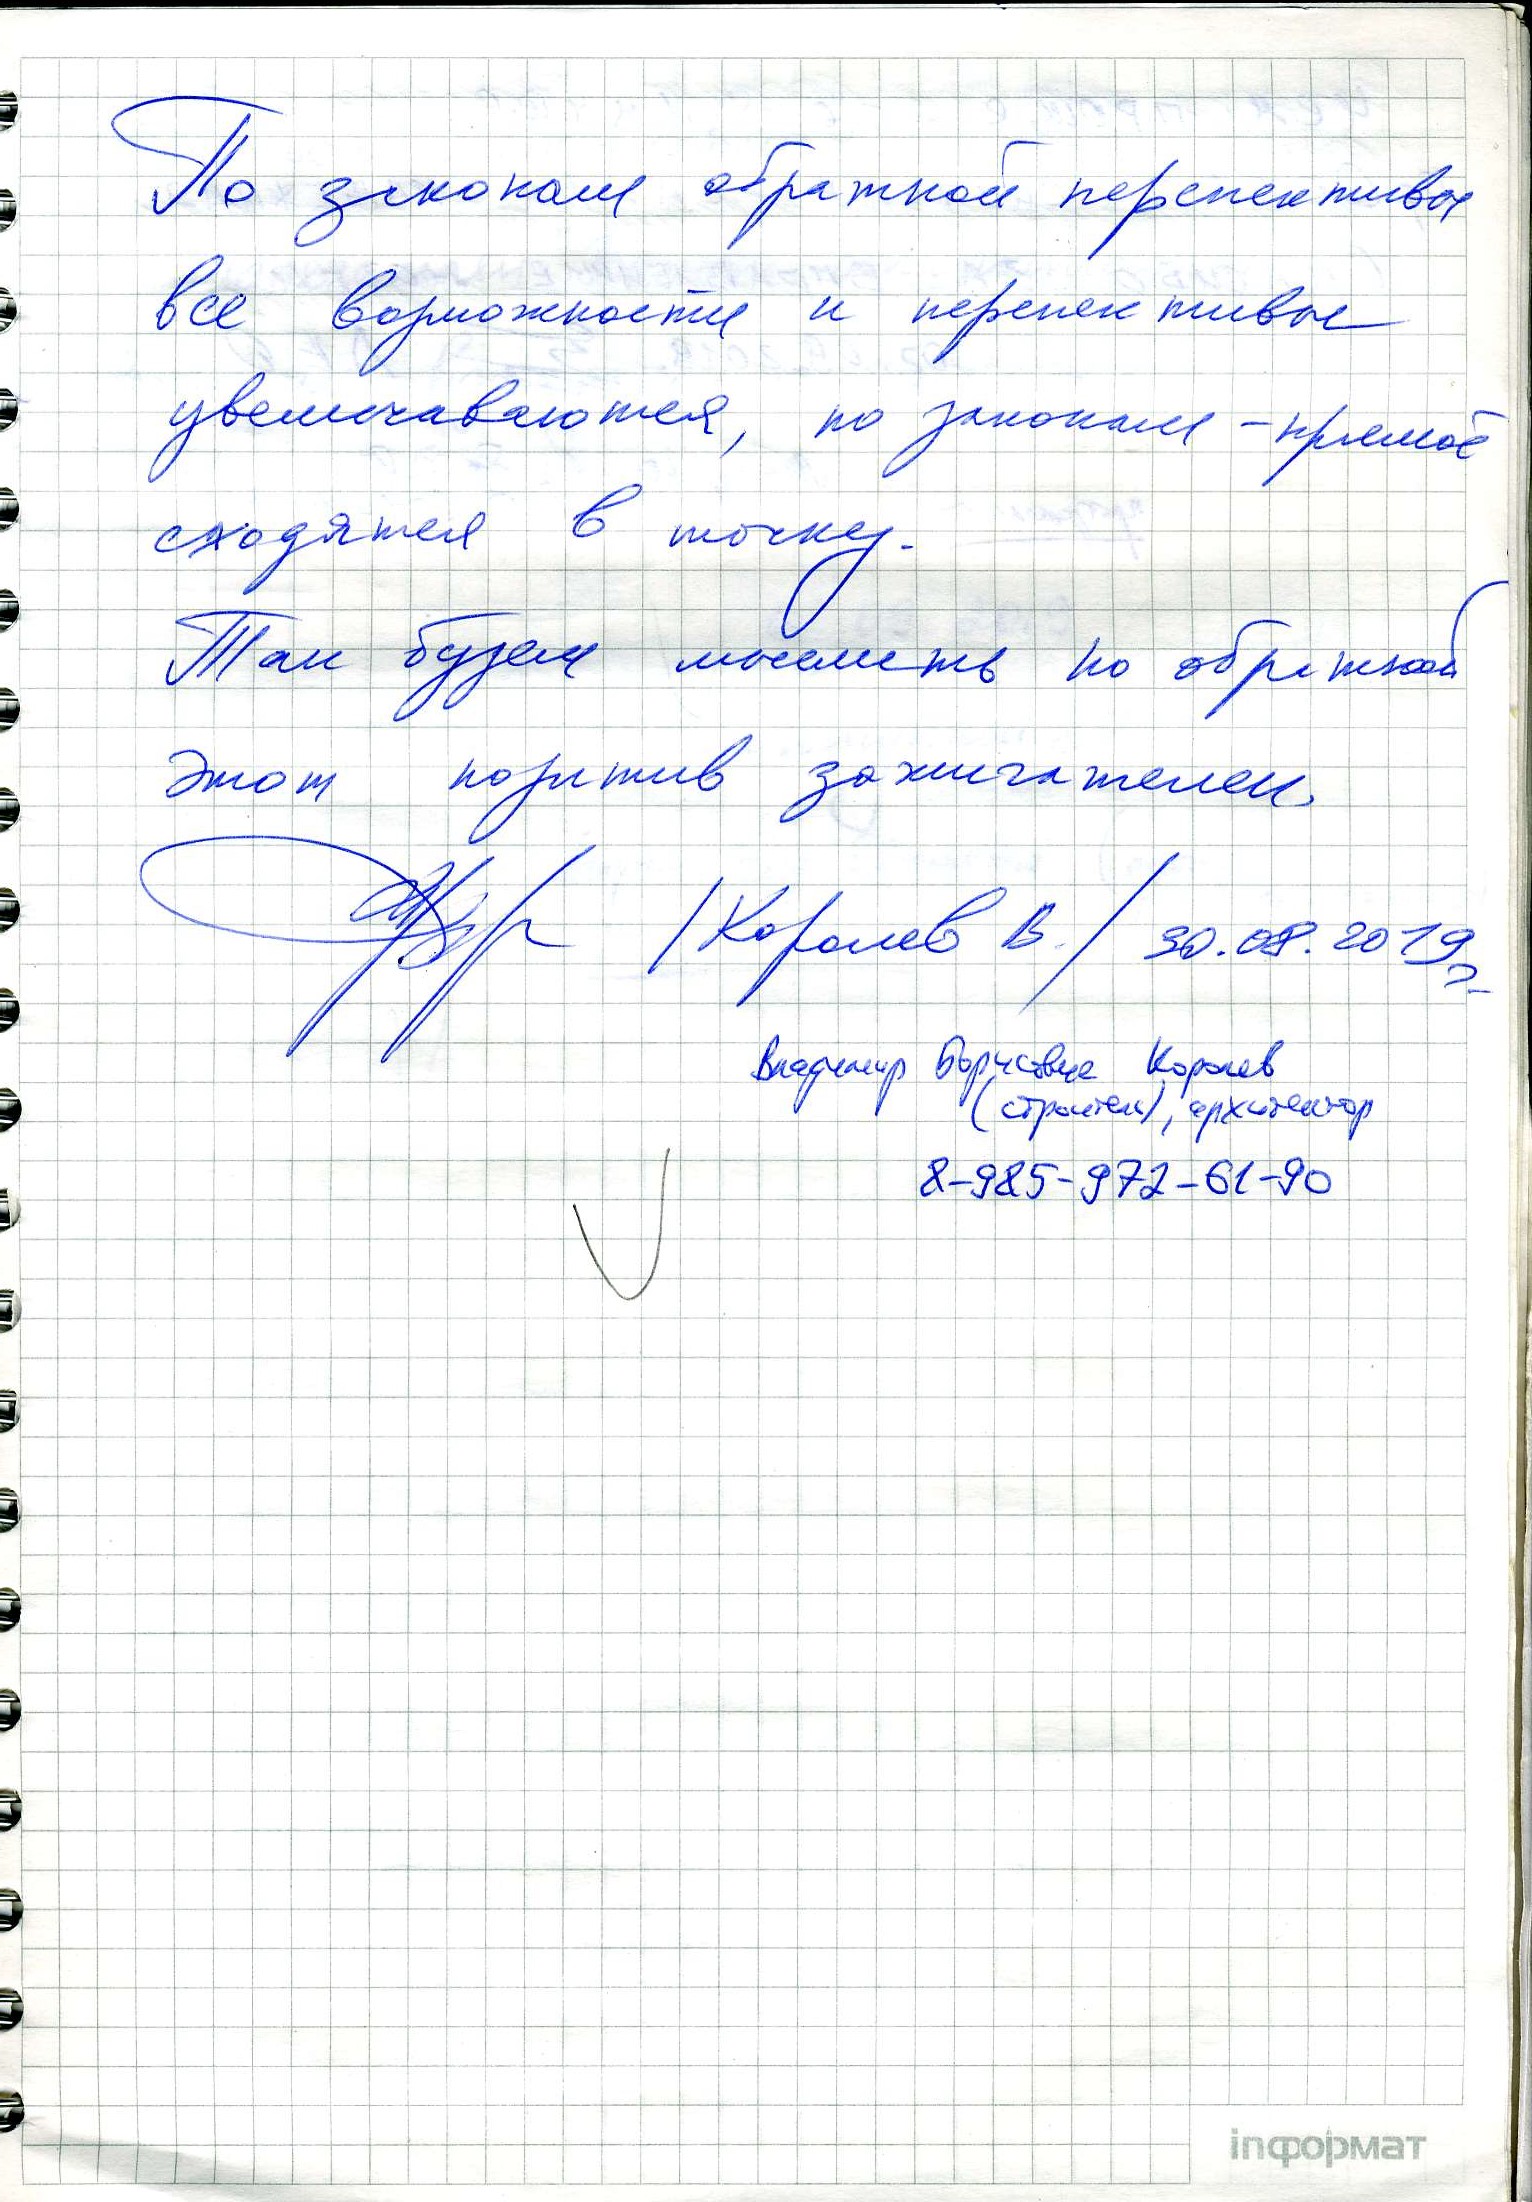 По законам обратной перспективы
все возможности и перспективы
увеличиваются, по законам - прямой
сходятся в точку.
Так будем мыслить по обратной
этот позитив зажигателен.
/Королев В./ 30.08.2019г.
Владимир Борисович Королев
(строитель), архитектор
8-985-972-61-90
inформат